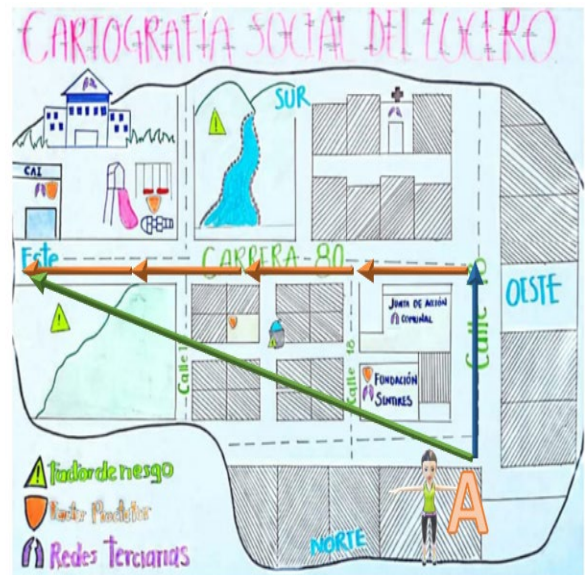 CARTOGRAFÍA SOCIAL DEL LUCERO
SUR
CAI
Este
CARRERA-80
OESTE
JUNTA DE ACCIÓN
COMUNAL
Calle 1
Calle 18
Calle
FUNDACIÓN
SENTIRES
A
Factor de riesgo
Factor
Redes Terciarias
NORTE